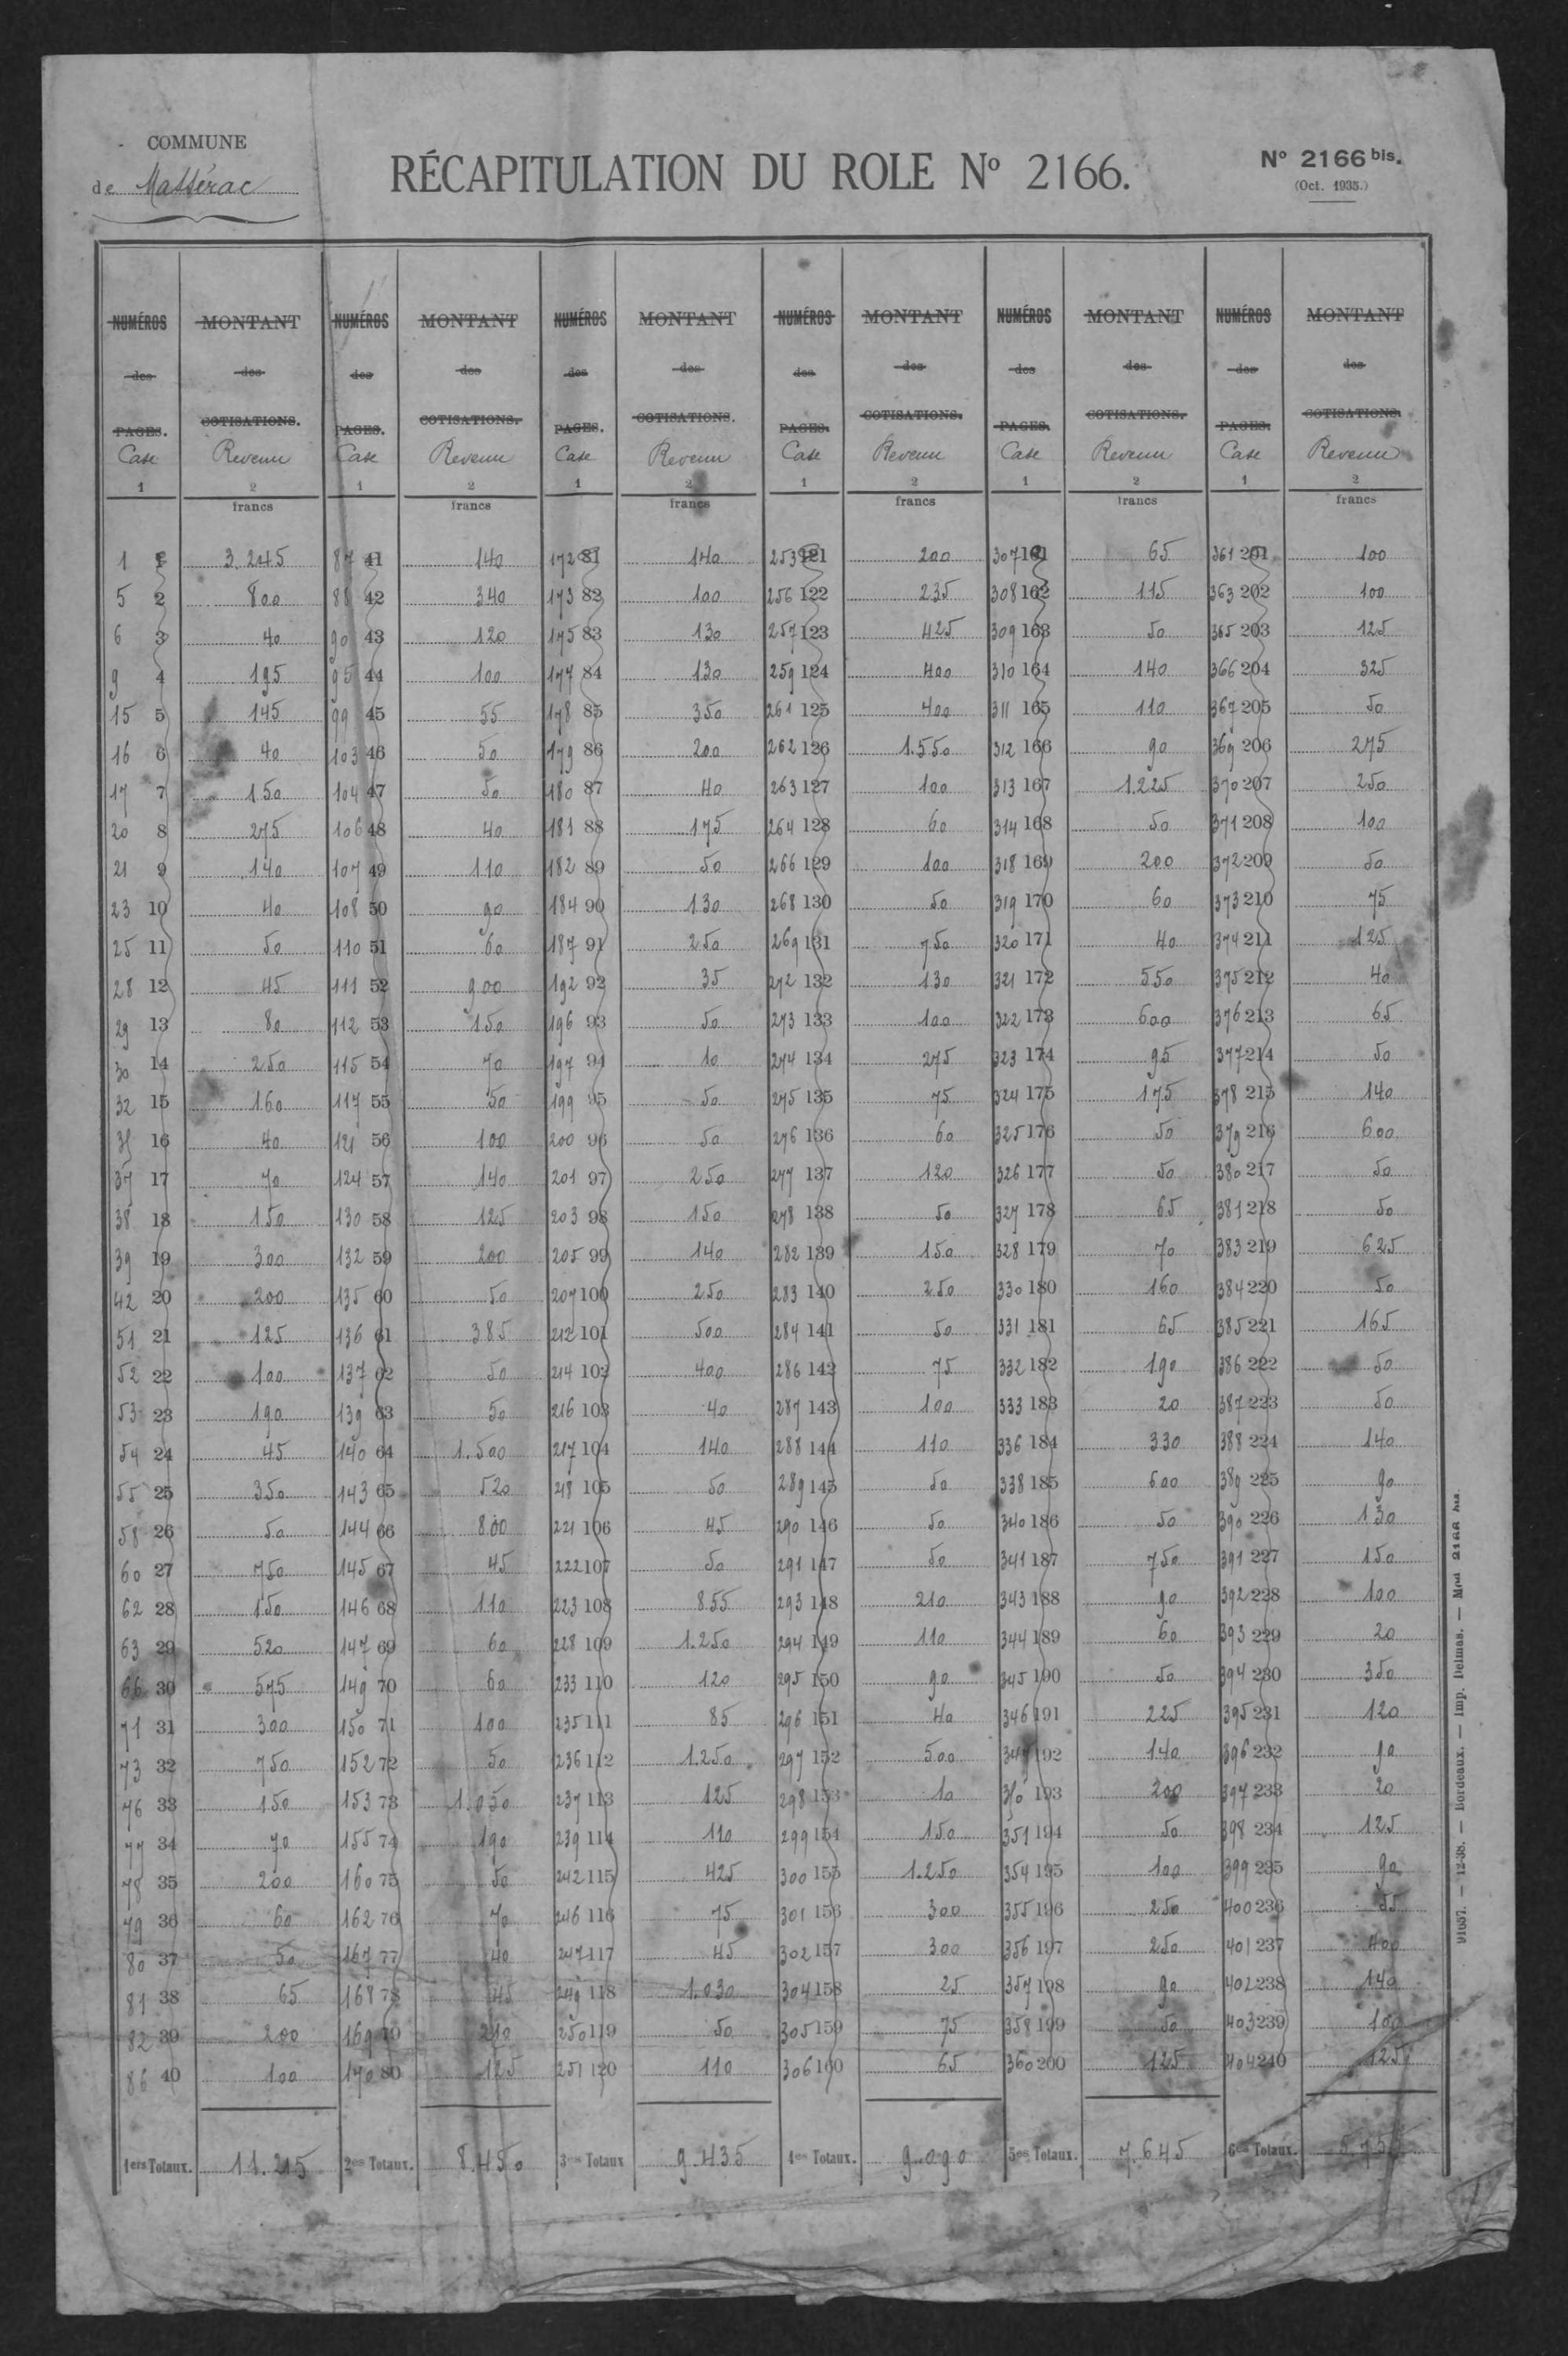 COMMUNE
de Massérac
RÉCAPITULATION DU ROLE Nº 2166.
Nº 2166 bis.
(Oct. 1935.)
NUMÉROS MONTANT NUMÉROS MONTANT NUMÉROS MONTANT NUMÉROS MONTANT NUMÉROS MONTANT NUMÉROS MONTANT
des des des des des des des des des des des des
PAGES. COTISATIONS. PAGES. COTISATIONS. PAGES. COTISATIONS. PAGES. COTISATIONS. PAGES. COTISATIONS. PAGES. COTISATIONS.
Case Revenu Case Revenu Case Revenu Case Revenu Case Revenu Case Revenu
1 2 1 2 1 2 1 2 1 2 1 2
francs francs francs francs francs francs
1 1 3.245 87 41 140 172 81 140 253 121 200 307 161 65 361 201 100
5 2 800 88 42 340 173 82 100 256 122 235 308 162 115 363 202 100
6 3 40 90 43 120 175 83 130 257 123 425 309 163 50 365 203 125
9 4 195 95 44 100 177 84 130 259 124 400 310 164 140 366 204 325
15 5 145 99 45 55 178 85 350 261 125 400 311 165 110 367 205 50
16 6 40 103 46 50 179 86 200 262 126 1.550 312 166 90 369 206 275
17 7 150 104 47 50 180 87 40 263 127 100 313 167 1.225 370 207 250
20 8 275 106 48 40 181 88 175 264 128 60 314 168 50 371 208 100
21 9 140 107 49 110 182 89 50 266 129 100 318 169 200 372 209 50
23 10 40 108 50 90 184 90 130 268 130 50 319 170 60 373 210 75
25 11 50 110 51 60 187 91 250 269 131 750 320 171 40 374 211 125
28 12 45 111 52 900 192 92 35 272 132 130 321 172 550 375 212 40
29 13 80 112 53 150 196 93 50 273 133 100 322 173 600 376 213 65
30 14 250 115 54 70 197 94 10 274 134 275 323 174 95 377 214 50
32 15 160 117 55 50 199 95 50 275 135 75 324 175 175 378 215 140
35 16 40 121 56 100 200 96 50 276 136 60 325 176 50 379 216 600
37 17 70 124 57 140 201 97 250 277 137 120 326 177 50 380 217 50
38 18 150 130 58 125 203 98 150 278 138 50 327 178 65 381 218 50
39 19 300 132 59 200 205 99 140 282 139 150 328 179 70 383 219 625
42 20 200 135 60 50 207 100 250 283 140 250 330 180 160 384 220 50
51 21 125 136 61 385 212 101 500 284 141 50 331 181 65 385 221 165
52 22 100 137 62 50 214 102 400 286 142 75 332 182 190 386 222 50
53 23 190 139 63 50 216 103 40 287 143 100 333 183 20 387 223 50
54 24 45 140 64 1.500 217 104 140 288 144 110 336 184 330 388 224 140
55 25 350 143 65 520 218 105 50 289 145 50 338 185 600 389 225 90
58 26 50 144 66 800 221 106 45 290 146 50 340 186 50 390 226 130
60 27 750 145 67 45 222 107 50 291 147 50 341 187 750 391 227 150
62 28 150 146 68 110 223 108 855 293 148 210 343 188 90 392 228 100
63 29 520 147 69 60 228 109 1.250 294 149 110 344 189 60 393 229 20
66 30 575 149 70 60 233 110 120 295 150 90 345 190 50 394 230 350
71 31 300 150 71 100 235 111 85 296 151 40 346 191 225 395 231 120
73 32 750 152 72 50 236 112 1.250 297 152 500 347 192 140 396 232 90
76 33 150 153 73 1.050 237 113 125 298 153 10 350 193 200 397 233 20
77 34 70 155 74 190 239 114 110 299 154 150 351 194 50 398 234 125
78 35 200 160 75 50 242 115 425 300 155 1.250 354 195 100 399 235 90
79 36 60 162 76 70 246 116 75 301 156 300 355 196 250 400 236 55
80 37 50 167 77 40 247 117 45 302 157 300 356 197 250 401 237 400
81 38 65 168 78 45 249 118 1.030 304 158 25 357 198 90 402 238 140
82 39 200 169 79 210 250 119 50 305 159 75 358 199 50 403 239 100
86 40 100 170 80 125 251 120 110 306 160 65 360 200 125 404 240 125
1ers Totaux. 11.215 2es Totaux. 8.450 3es Totaux 9.435 4es Totaux. 9.090 5es Totaux. 7.645 6es Totaux.
91037. — 12-38. — Bordeaux. — Imp. Delmas. — Mod 2166 bis.